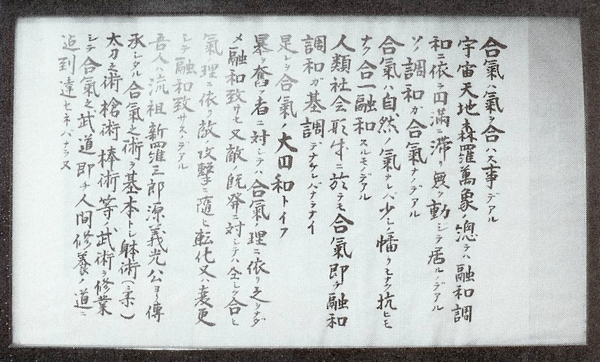 合氣ハ氣ヲ合ハス事デアル
宇宙天地森羅萬象ノ總テハ融和調
和ニ依リ円滿ニ滯リ無ク動シテ居ルノデアル
ソノ調和ガ合氣ナノデアル
合氣ハ自然ノ氣ナレバ少シノ蟠リモナク抗ヒモ
ナク合一融和スルモノデアル
人類社会形成ニ於テモ合氣即チ融和
調和ガ基調デナケレバナラナイ
是レヲ合氣ノ大円和トイフ
暴ヲ奮フ者ニ対シテハ合氣ノ理ニ依リ之ヲナダ
メ融和致サセ又敵ノ既発ニ対シテハ合ヒ
氣ノ理ニ依リ敵ノ攻撃ニ隨ヒ転化又ハ変更
シテ融和致サスノデアル
吾人ハ流祖新羅三郎源義光公ヨリ傳
承シタル合氣之術ヲ基本トシ躰術(柔)
太刀之術槍術棒術等ノ武術ヲ修業
シテ合氣之武道即チ人間修養ノ道ニ
迠到達セネバナラヌ